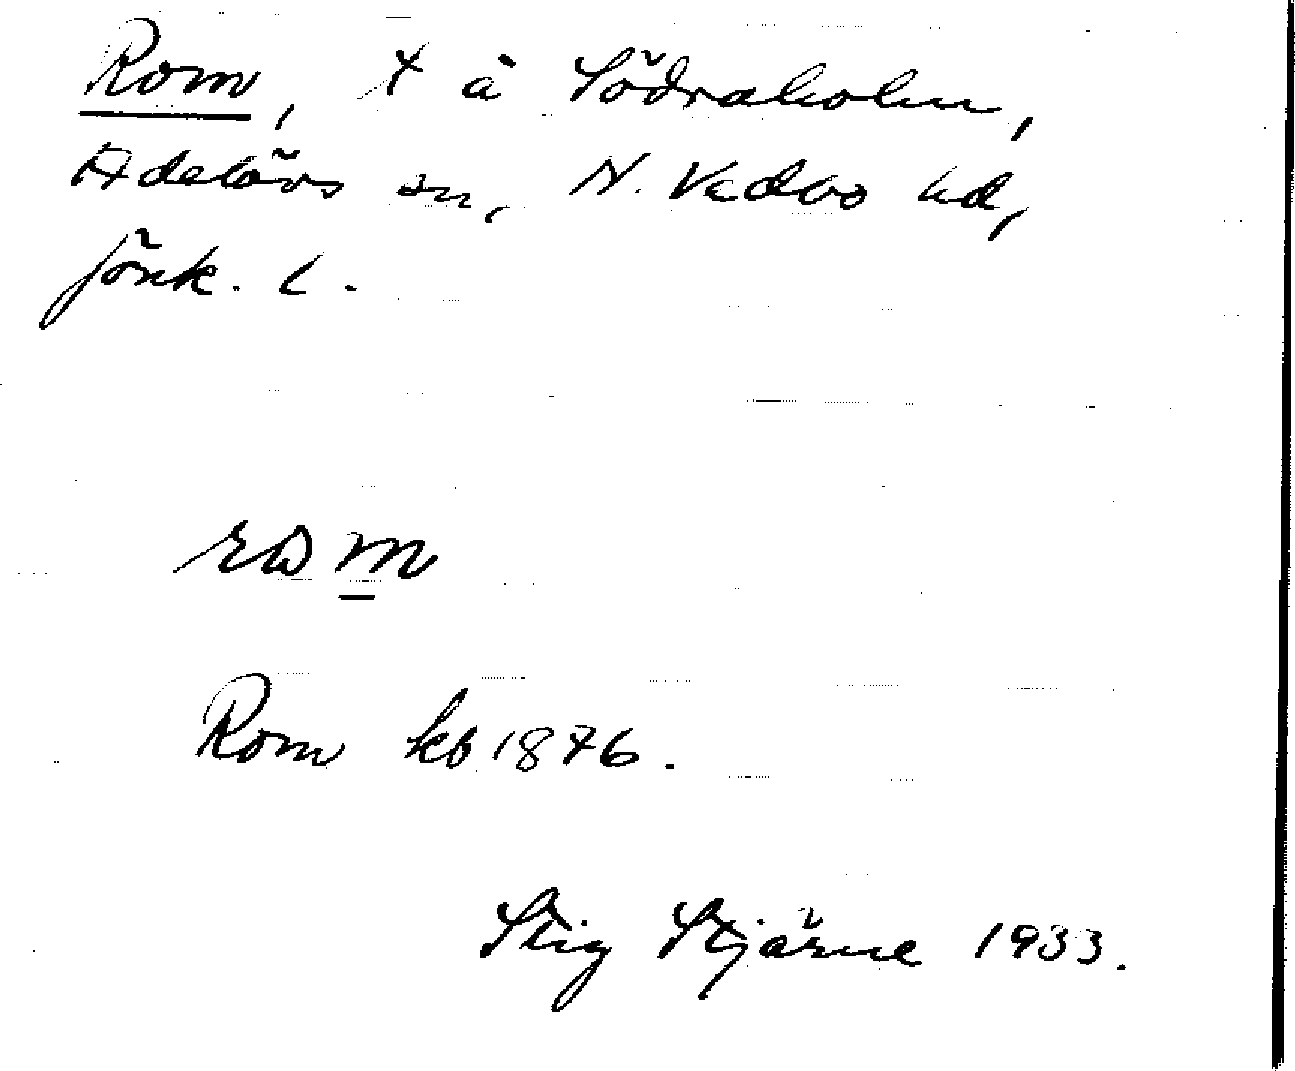 Rom, × å Södraholm,
Adelövs sn, N. Vedbo hd,
Jönk. l.
rom
Rom kb 1876.
Stig Stjärne 1933.